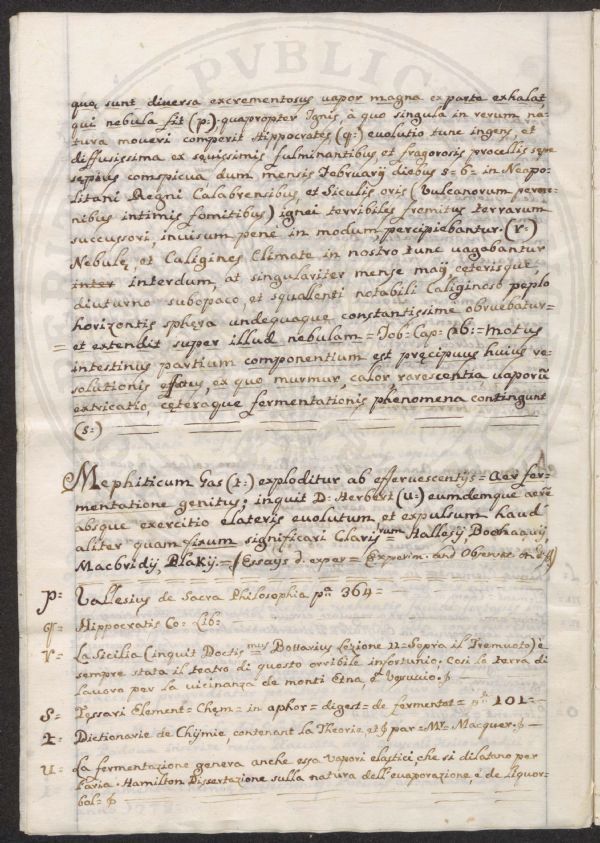 PUBLIC
quo sunt diversa excrementosus vapor magna ex parte exhalat,
qui nebula fit (p:); quapropter Ignis, à quo singula in rerum na=
tura moveri comperit Hippocrates (q:) evolutio tunc ingens, et
diffusissima ex sęvissimis fulminantibus, et fragorosis procellis sępe
sępius conspicua dum mensis Februarij diebus 5=6= in Neapo=
litani Regni Calabrensibus, et Siculis oris (Vulcanorum peren=
nibus intimis fomitibus) ignei terribiles fremitus terrarum
succussori, invisum pene in modum, percipiebantur. (r:)
Nebulę, et Caligines Climate in nostro tunc vagabantur
inter interdum, at singulariter mense maij, cęterisque,
diuturno subopaco, et squallenti notabili Caliginoso peplo
horizontis sphęra undequaque constantissime obruebatur=
= et extendit super illud nebulam = Iob= Cap= = Motus
intestinus partium componentium est pręcipuus huius re=
solutionis effętus, ex quo murmur, calor, rarescentia, vaporū
extricatio, cęteraque fermentationis phęnomena contingunt
(s:)
Mephiticum Gas (t:) exploditur ab effervescentijs = Aer fer=
mentatione genitus; inquit D: Herbert (u:) eumdemque aerē
absque exercitio elateris evolutum et expulsum haud
aliter quam fixum significari Claris=rum= Hallesij Boerhaavij,
Macbridij, Blakij = (Essays d. exper = Experim. and Observat.
p= Vallesius de Sacra Philosophia pa 364=
q= Hippocratis Co= Lib=
r= La Sicilia (inquit Doctis=mus Bottarius Lezione 11= Sopra il Tremuoto) è
sempre stata il teatro di questo orribile infortunio. Così la terra di
Lavoro per la vicinanza de monti Etna, e Vesuvio.
s= Tessari Element= Chęm= in aphor= digest= de fermentat= n° 101=
t= Dictionarie de Chijmie contenant la Theorie, et par= Mr. Macquer.
u= La fermentazione genera anche essa vapori elastici, che si dilatano per
l'aria. Hamilton Dissertazione sulla natura dell'evaporazione, e de Liquor=
bol=